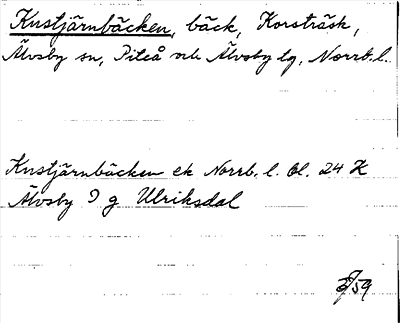 Knstjärnbäcken, bäck, Korsträsk,
Älvsby sn, Piteå och Älvsby tg, Norrb. l.
Knstjärnbäcken ek Norrb. l. bl. 24 K
Älvsby 9 g Ulriksdal
59